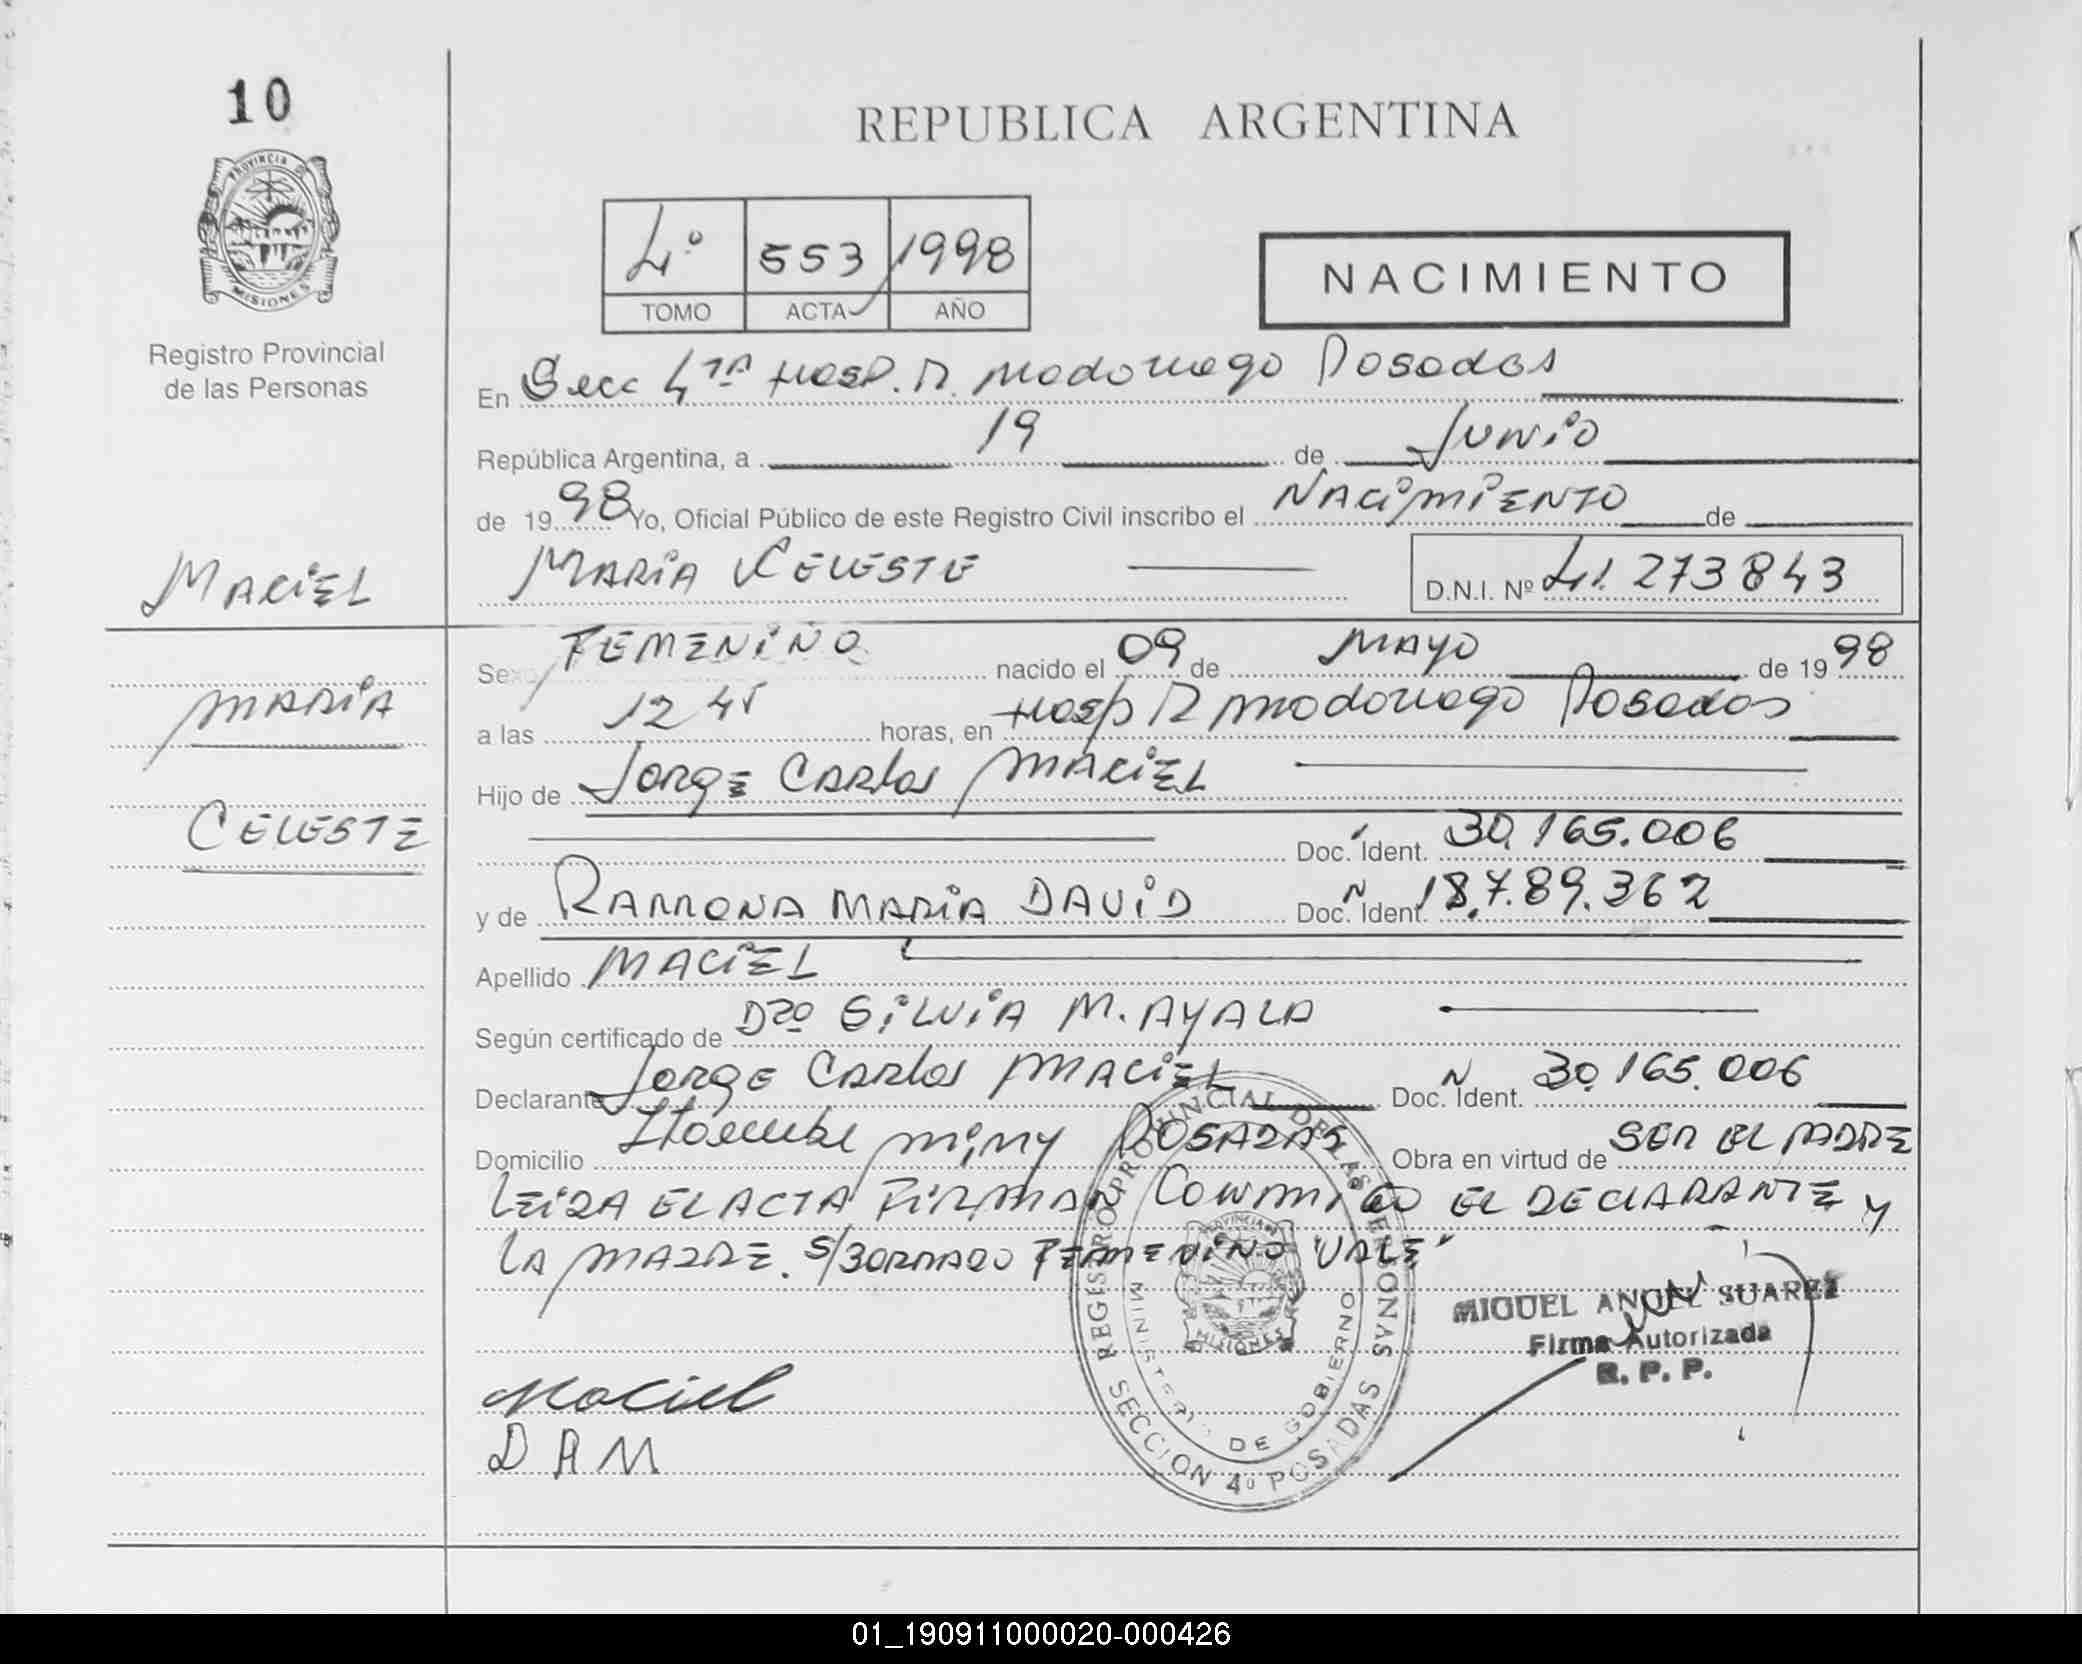 10
PROVINCIA
MISIONES
Registro Provincial
de las Personas
REPUBLICA ARGENTINA
4º 553 1998
TOMO ACTA AÑO
NACIMIENTO
En Secc 4TA Hosp. R. Madariaga Posadas
República Argentina, a 19 de Junio
de 1998 Yo, Oficial Público de este Registro Civil inscribo el NACIMIENTO de
MACIEL
MARIA CELESTE D.N.I. Nº 41.273843
MARIA
CELESTE
Sexo FEMENINO nacido el 09 de MAYO de 1998
a las 12 45 horas, en Hosp R Madariaga Posadas
Hijo de Jorge Carlos MACIEL
Doc. Ident. 30.165.006
y de RAMONA MARIA DAVID Doc. Ident. 18.789.362
Apellido MACIEL
Según certificado de Dra SILVIA M. AYALA
Declarante Jorge Carlos MACIEL Doc. Ident. 30.165.006
Domicilio Itaembe miny POSADAS Obra en virtud de SER EL PADRE
LEIDA EL ACTA FIRMAN CONMIGO EL DECLARANTE y
LA MADRE. S/BORRADO FEMENINO "VALE"
REGISTRO PROVINCIAL DE LAS PERSONAS
MINISTERIO DE GOBIERNO
PROVINCIA
MISIONES
SECCION 4º POSADAS
MIGUEL ANGEL SUAREZ
Firma Autorizada
R. P. P.
Maciel
DAM
01_190911000020-000426